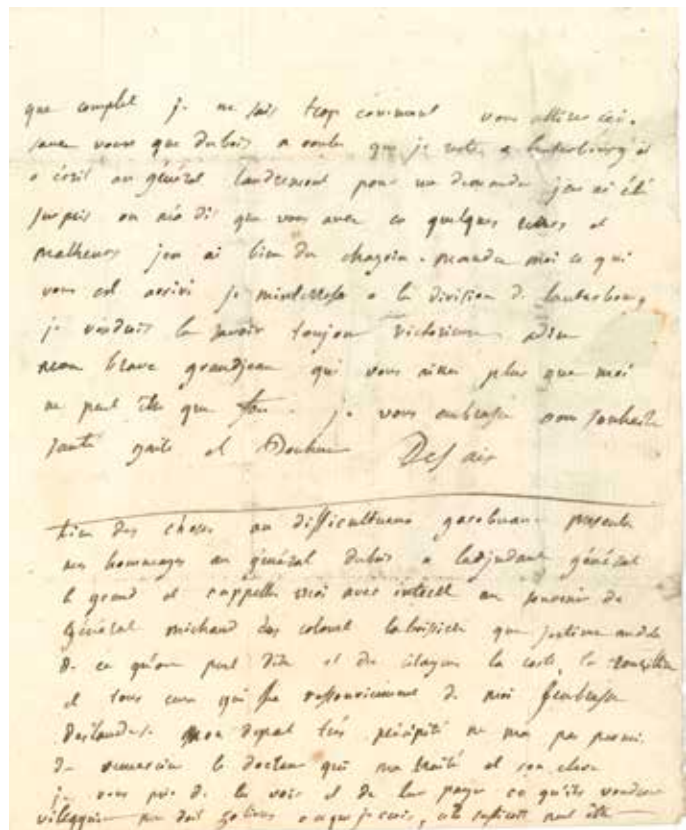 que complet je ne sais trop comment vous attirer ici.
savez vous que dubois a voulu que je reste a lauterbourg il
a écrit au général landremont pour me demander jen ai été
surpris on ma dit que vous avez eu quelques revers et
malheurs jen ai bien du chagrin. mandez moi ce qui
vous est arrivé je minteresse a la division de lauterbourg
je voudrais la savoir toujour victorieuse adieu
mon brave grandjean qui vous aime plus que moi
ne peut être que fou. je vous embrasse vous souhaite
santé gaité et Bonheur Desaix
bien des choses au présentez
mes hommages au général dubois a ladjudant général
le grand et rappellez moi avec interet au souvenir du
général michaud du colonel que jestime audela
de ce qu'on peut dire et du citoyen la coste,
et tous ceux qui se ressouviennent de moi jembrasse
mon depart très précipité ne ma pas permi
de remercier le docteur qui ma traité et son eleve
je vous prie de le voir et de lui payer ce qu'ils voudront
me doit 50 livres a ce que je crois, cela suffirait peut être